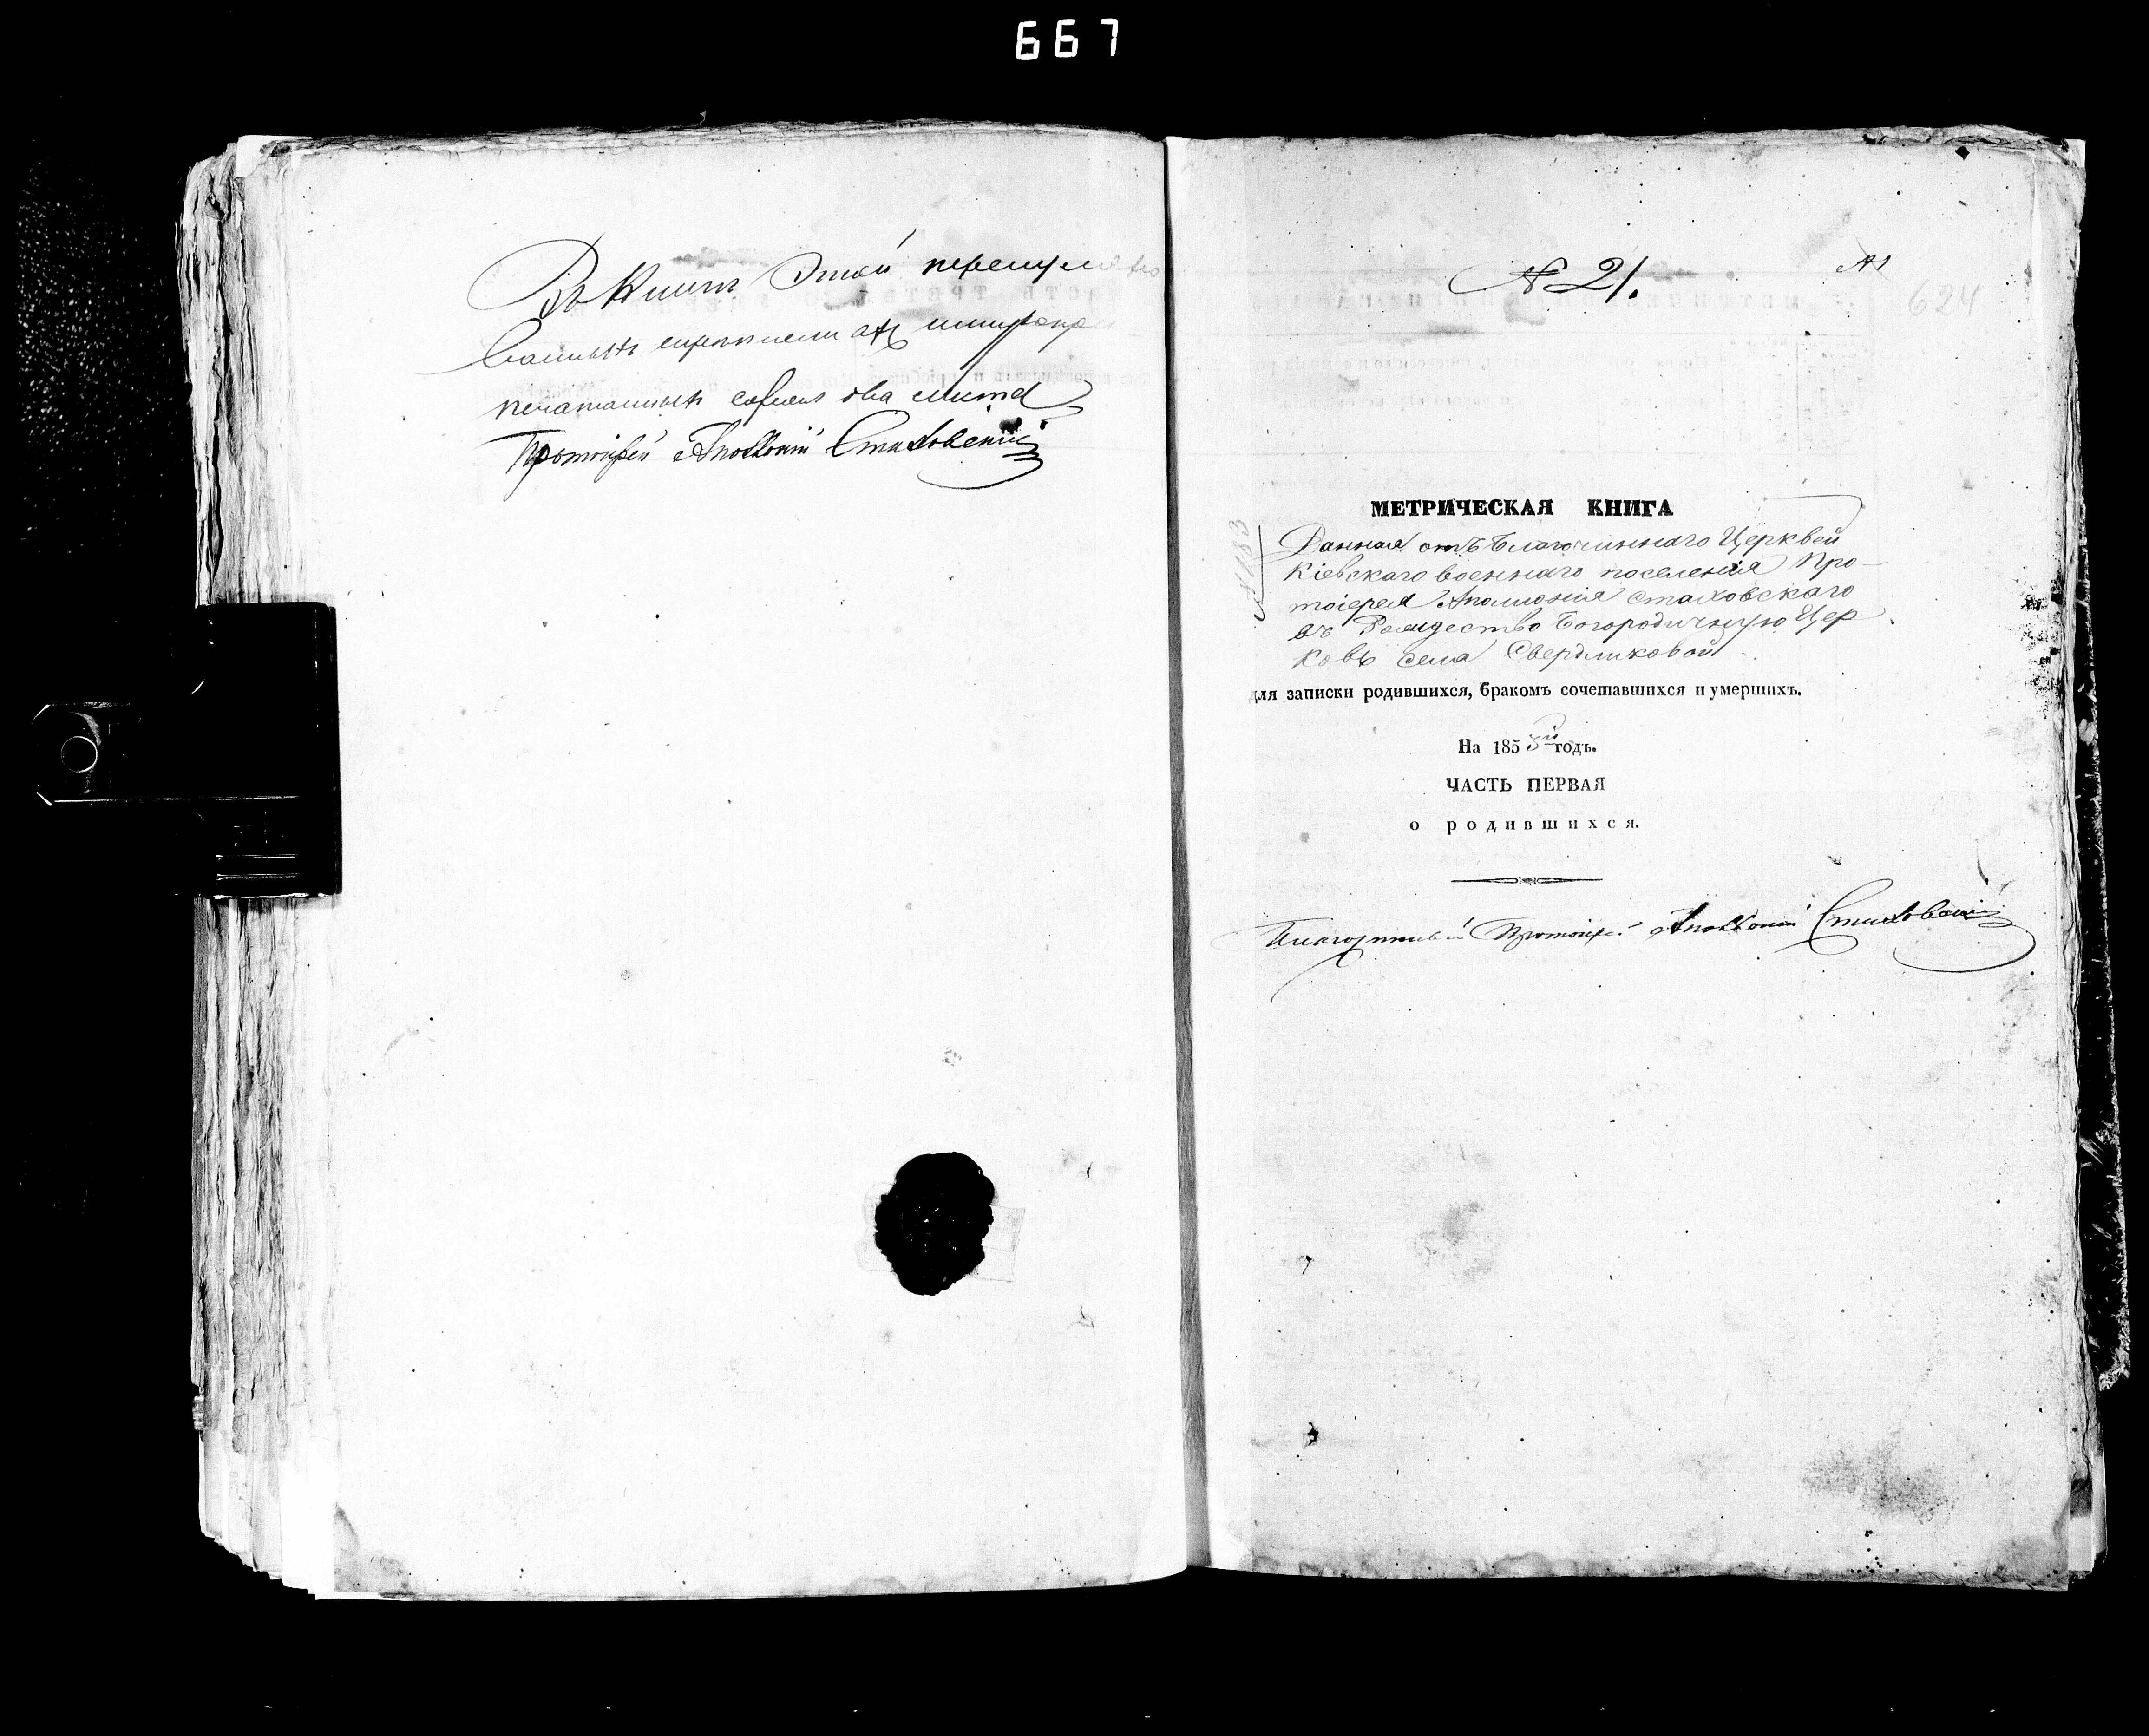 667
Въ Книгѣ Этой перенумеро
ванныхъ скрѣпленныхъ
печатанныхъ сорокъ два листа
Протоіерей Аполлоній Стаховскій
№ 21.
№1
624
МЕТРИЧЕСКАЯ КНИГА
Данная отъ Благочиннаго Церквей
Кіевскаго военнаго поселенія Про-
тоіерея Аполлонія Стаховскаго
въ Рождество Богородичную Цер
ковь села Свердликовой
для записки родившихся, бракомъ сочетавшихся и умершихъ.
На 1853й годъ.
ЧАСТЬ ПЕРВАЯ
о родившихся.
Благочинный Протоіерей Аполлоній Стаховскій